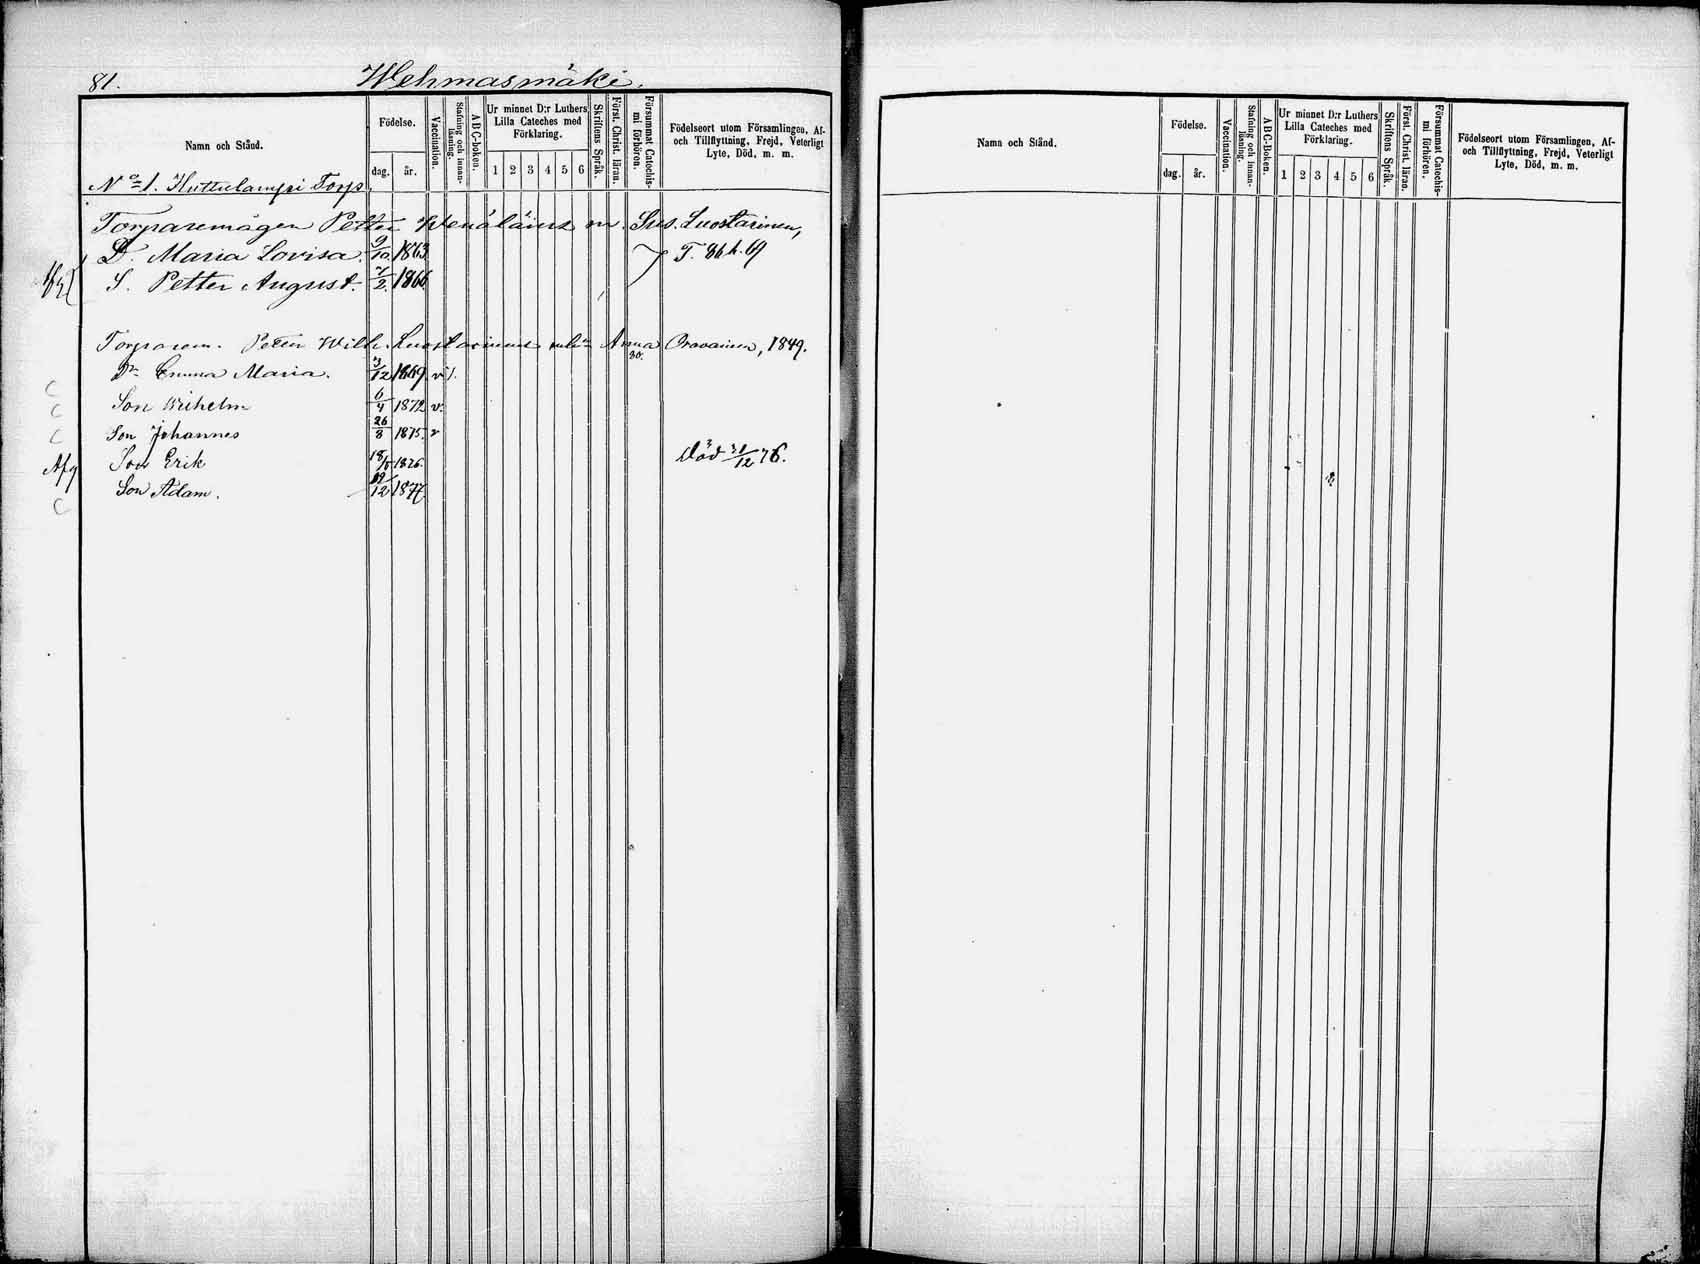 81. Wehmasmäki.
Namn och Stånd.
Födelse.
dag. år.
Vaccination.
Stafning och innanläsning.
ABC-boken.
Ur minnet D:r Luthers Lilla Cateches med Förklaring.
1 2 3 4 5 6
Skriftens Språk.
Först. Christ. läran.
Försummat Catechismi förhören.
Födelseort utom Församlingen, Af- och Tillflyttning, Frejd, Veterligt Lyte, Död, m. m.
No 1. Huttulampi Torp
Torparemågen Petter Wenäläinens m. Sus. Luostarinen,
D. Maria Lovisa. 9/10 1863 T. 86 h. 69
S. Petter August. 7/2 1866.
Torparen. Petter Wilh. Luostarinens Anna Oravainen, 1849.
Dr Emma Maria. 3/12 1869. v.
Son Wilhelm 6/4 1872 v.
Son Johannes 26/8 1875. v
Afg Son Erik 1876. Död 31/12 76.
Son Adam. 12 1877
Namn och Stånd.
Födelse.
dag. år.
Vaccination.
Stafning och innanläsning.
ABC-Boken.
Ur minnet D:r Luthers Lilla Cateches med Förklaring.
1 2 3 4 5 6
Skriftens Språk.
Först. Christ. läran.
Försummat Catechismi förhören.
Födelseort utom Församlingen, Af- och Tillflyttning, Frejd, Veterligt Lyte, Död, m. m.